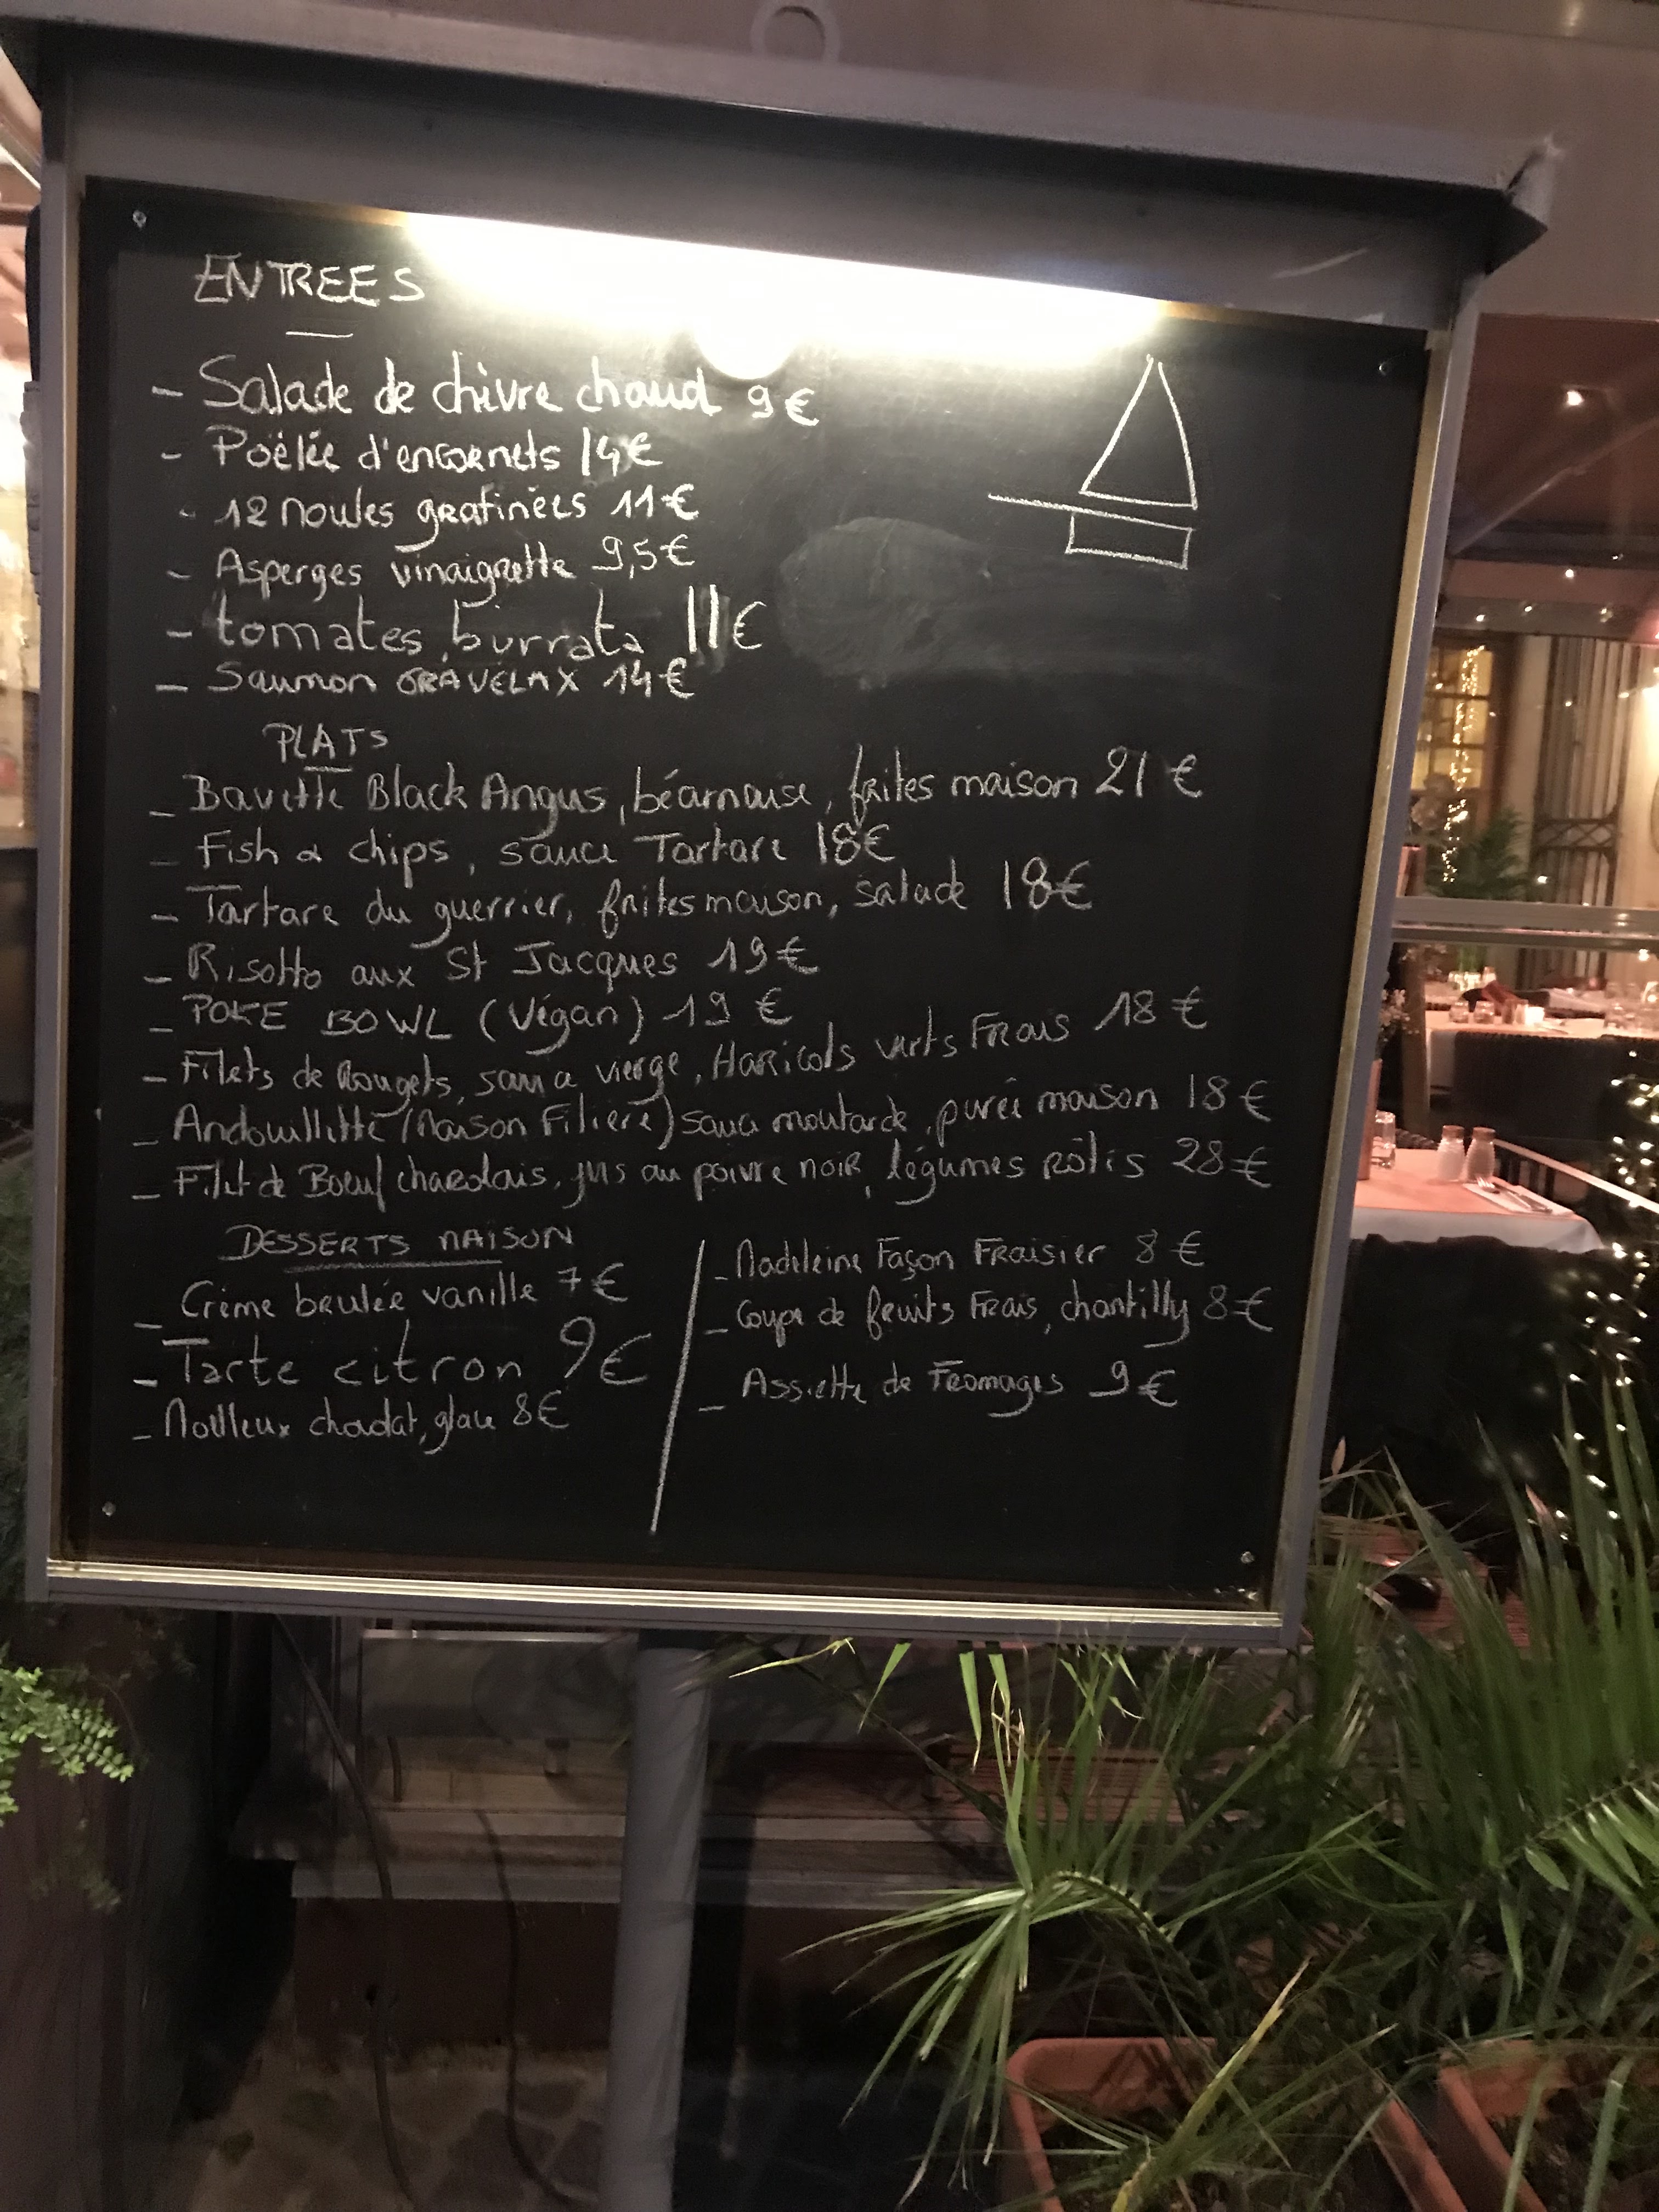 ENTREES
- Salade de chèvre chaud 9€
- Poêlée d'encornets 14€
- 12 Moules gratinées 11€
- Asperges vinaigrette 9,5€
- tomates, burrata 11€
- Saumon GRAVELAX 14€
PLATS
- Bavette Black Angus, béarnaise, frites maison 21 €
- Fish & chips, sauce Tartare 18€
- Tartare du guerrier, frites maison, salade 18€
- Risotto aux St Jacques 19€
- POKE BOWL (Végan) 19 €
- Filets de Rougets, sauce vierge, Haricots verts Frais 18 €
- Andouillette (Maison Filière) sauce moutarde, purée maison 18 €
- Filet de Boeuf charolais, jus au poivre noir, légumes rôtis 28€
DESSERTS MAISON
- Crème brulée vanille 7€
- Tarte citron 9€
- Moelleux chocolat, glace 8€
- Madeleine Façon Fraisier 8 €
- Coupe de fruits Frais, chantilly 8€
- Assiette de Fromages 9€